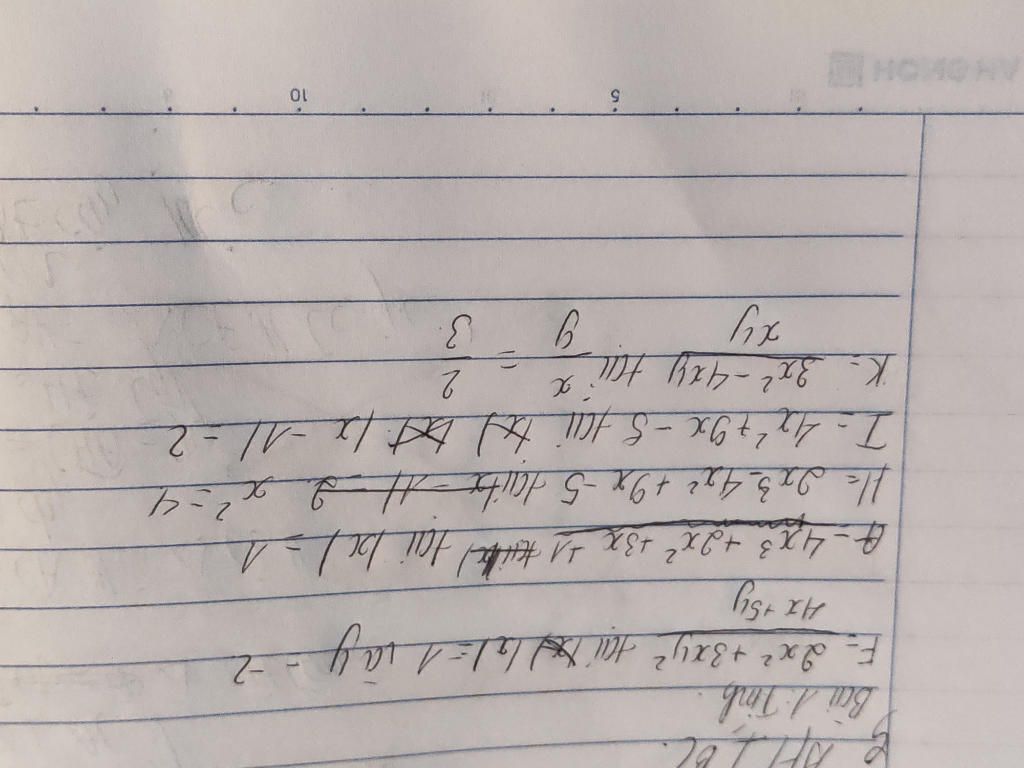 AH ⊥ BC.
Bài 1: Tính
F = 2x² + 3xy² / 4x + 5y tại |x| = 1 và y = -2
G = 4x³ + 2x² + 3x + 1 tại |x| = 1
H = 2x³ - 4x² + 9x - 5 tại x² = 4
I = 4x² + 9x - 5 tại |x - 1| = 2
K = 3x² - 4xy / xy tại x / y = 2 / 3
5 10
HONG HA